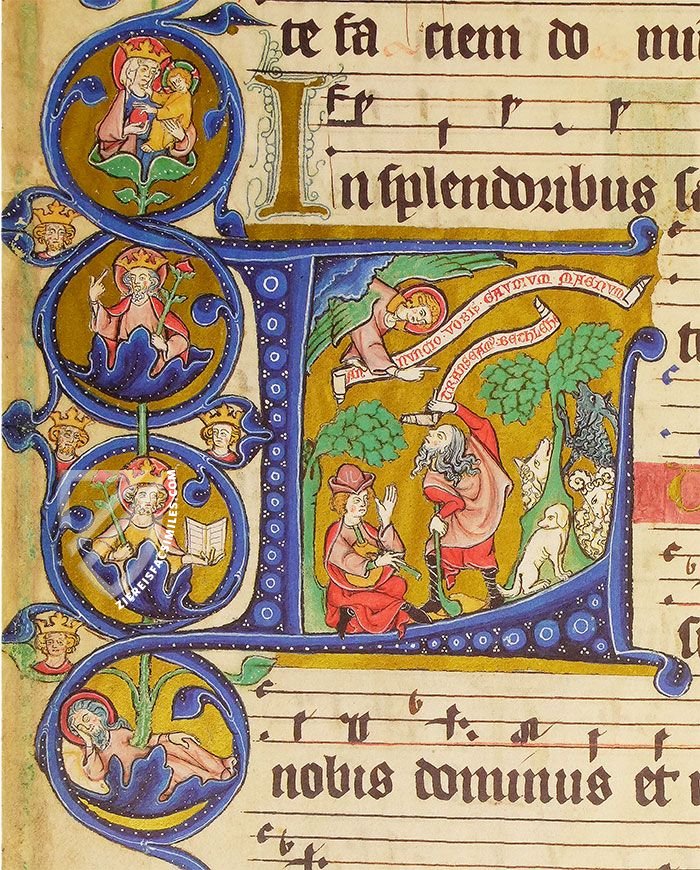 te fa ciem do mi
In splendoribus sa
AN NVNCIO · VOBIS · GAVDIVM MAGNVM
TRANSEAM BETHLEH
ZIEREISFACSIMILES.COM
nobis dominus et